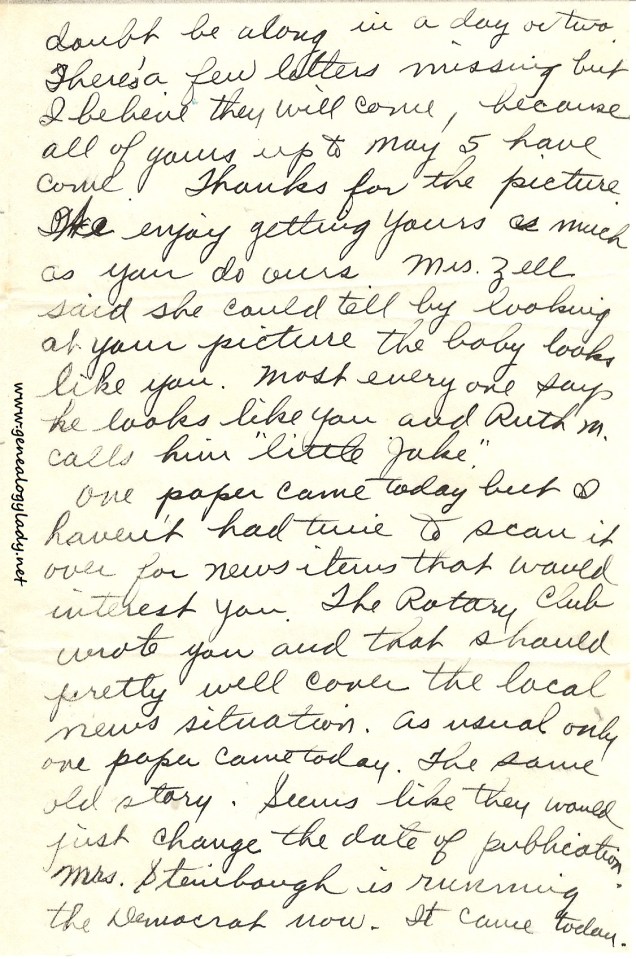 doubt be along in a day or two.
There's a few letters missing but
I believe they will come, because
all of yours up to May 5 have
come. Thanks for the picture.
We enjoy getting yours as much
as you do ours. Mrs. Zell
said she could tell by looking
at your picture the baby looks
like you. Most every one says
he looks like you and Ruth M.
calls him "little Jake".
One paper came today but I
haven't had time to scan it
over for news items that would
interest you. The Rotary Club
wrote you and that should
pretty well cover the local
news situation. As usual only
one paper came today. The same
old story. Seems like they would
just change the date of publication.
Mrs. Steinbaugh is running
the Democrat now. It came today.
www.genealogylady.net